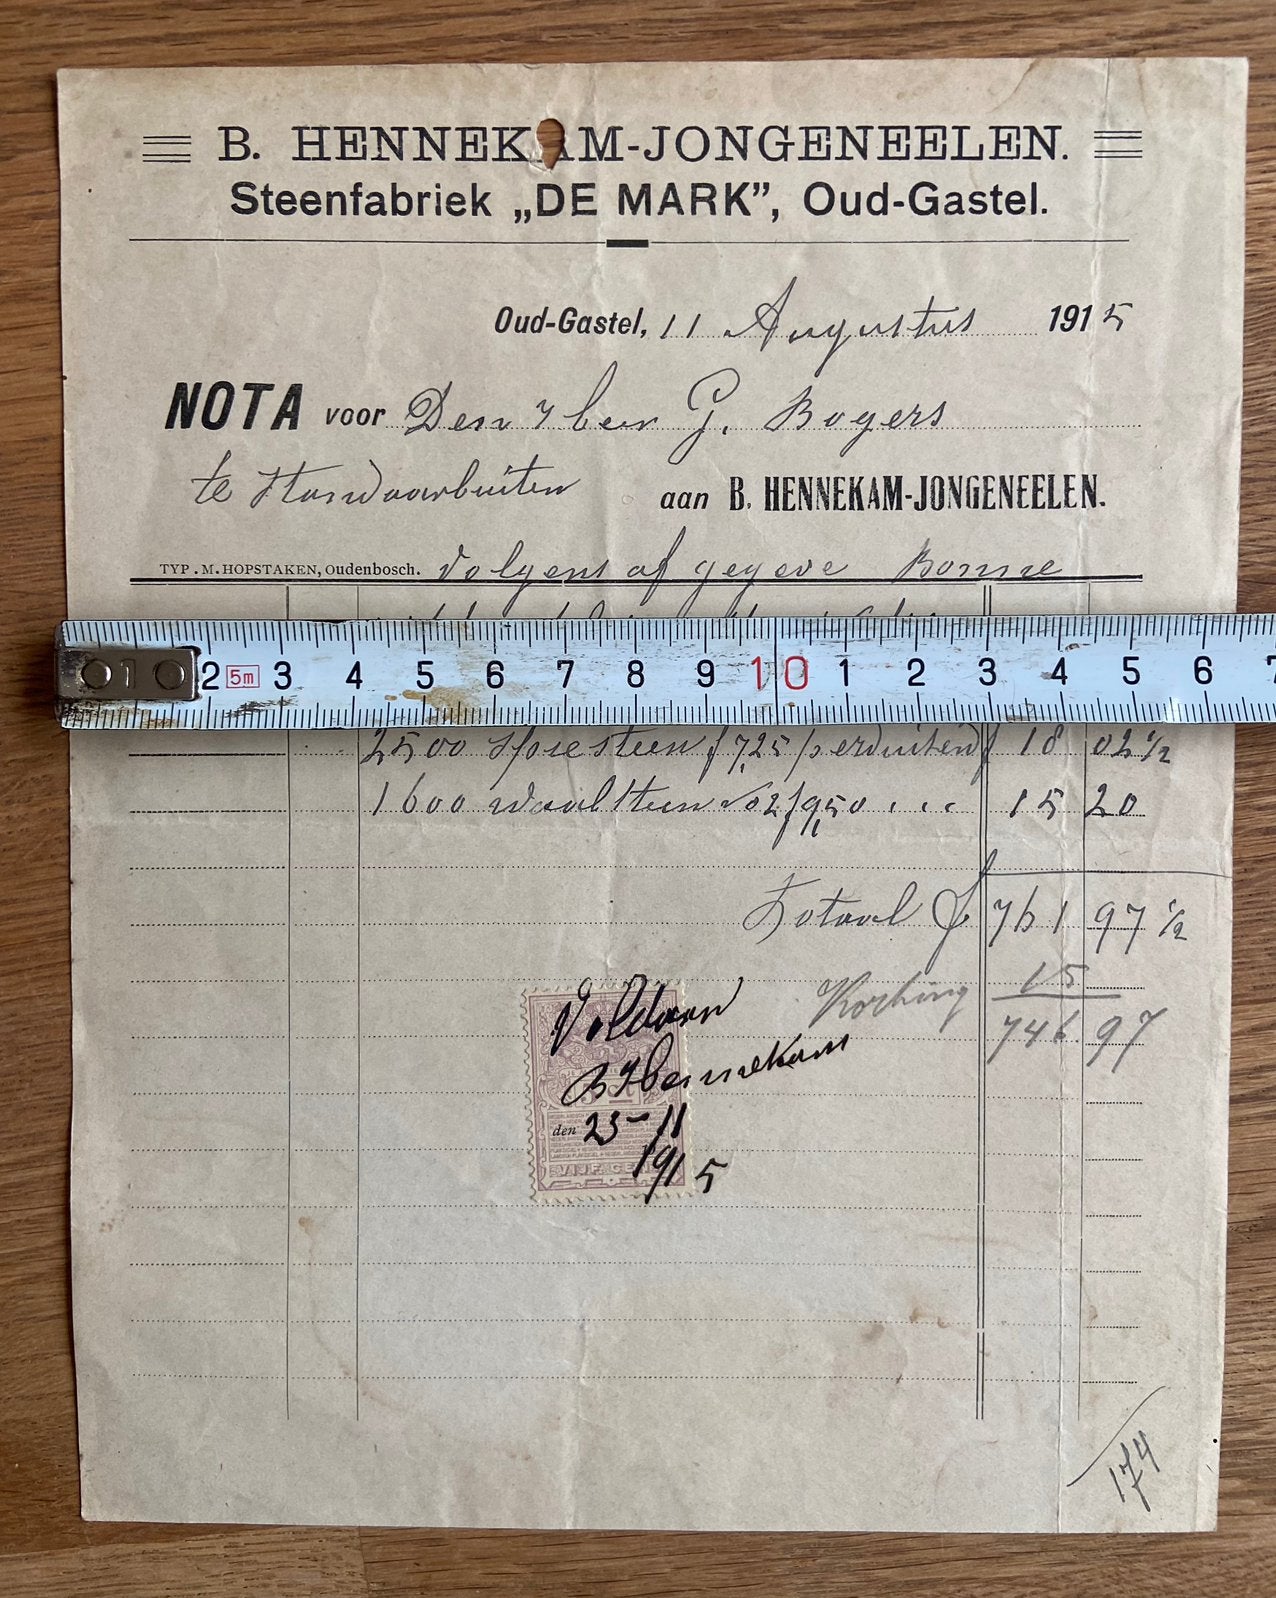 B. HENNEKAM-JONGENEELEN.
Steenfabriek „DE MARK”, Oud-Gastel.
Oud-Gastel, 11 Augustus 1915
NOTA voor Den Heer G. Bogers
te Standaarbuiten
aan B. HENNEKAM-JONGENEELEN.
TYP. M. HOPSTAKEN, Oudenbosch. Volgens af gegeve Bonne
1 2 5m 3 4 5 6 7 8 9 10 1 2 3 4 5 6 7
2500 steen f 7,25 per duizend f 18 02 ½
1600 Waalsteen No 2 f 9,50 . . . 15 20
Totaal f 761 97 ½
Korting 15
746.97
Voldaan
B Hennekam
den 25-11
1915
174